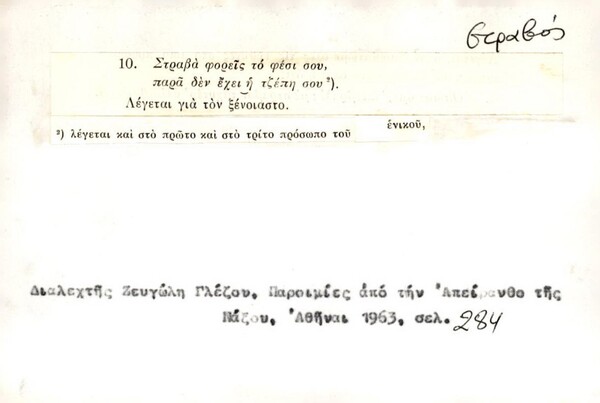 στραβός
10. Στραβὰ φορεῖς τό φέσι σου,
παρᾶ δὲν ἔχει ἡ τζέπη σου²).
Λέγεται γιὰ τὸν ξένοιαστο.
²) λέγεται καὶ στὸ πρῶτο καὶ στὸ τρίτο πρόσωπο τοῦ ἑνικοῦ,
Διαλεχτῆς Ζευγώλη Γλέζου, Παροιμίες ἀπό τήν Ἀπείρανθο τῆς
Νάξου, Ἀθῆναι 1963, σελ. 284